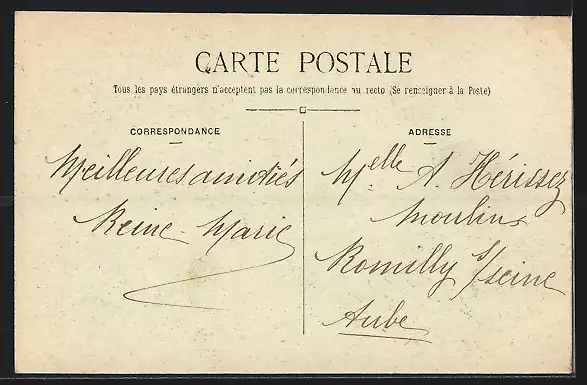 CARTE POSTALE
Tous les pays étrangers n'acceptent pas la correspondance au recto (Se renseigner à la Poste)
CORRESPONDANCE
Meilleures amitiés
Reine-Marie
ADRESSE
Melle A. Hérissez
Moulins
Romilly s/seine
Aube